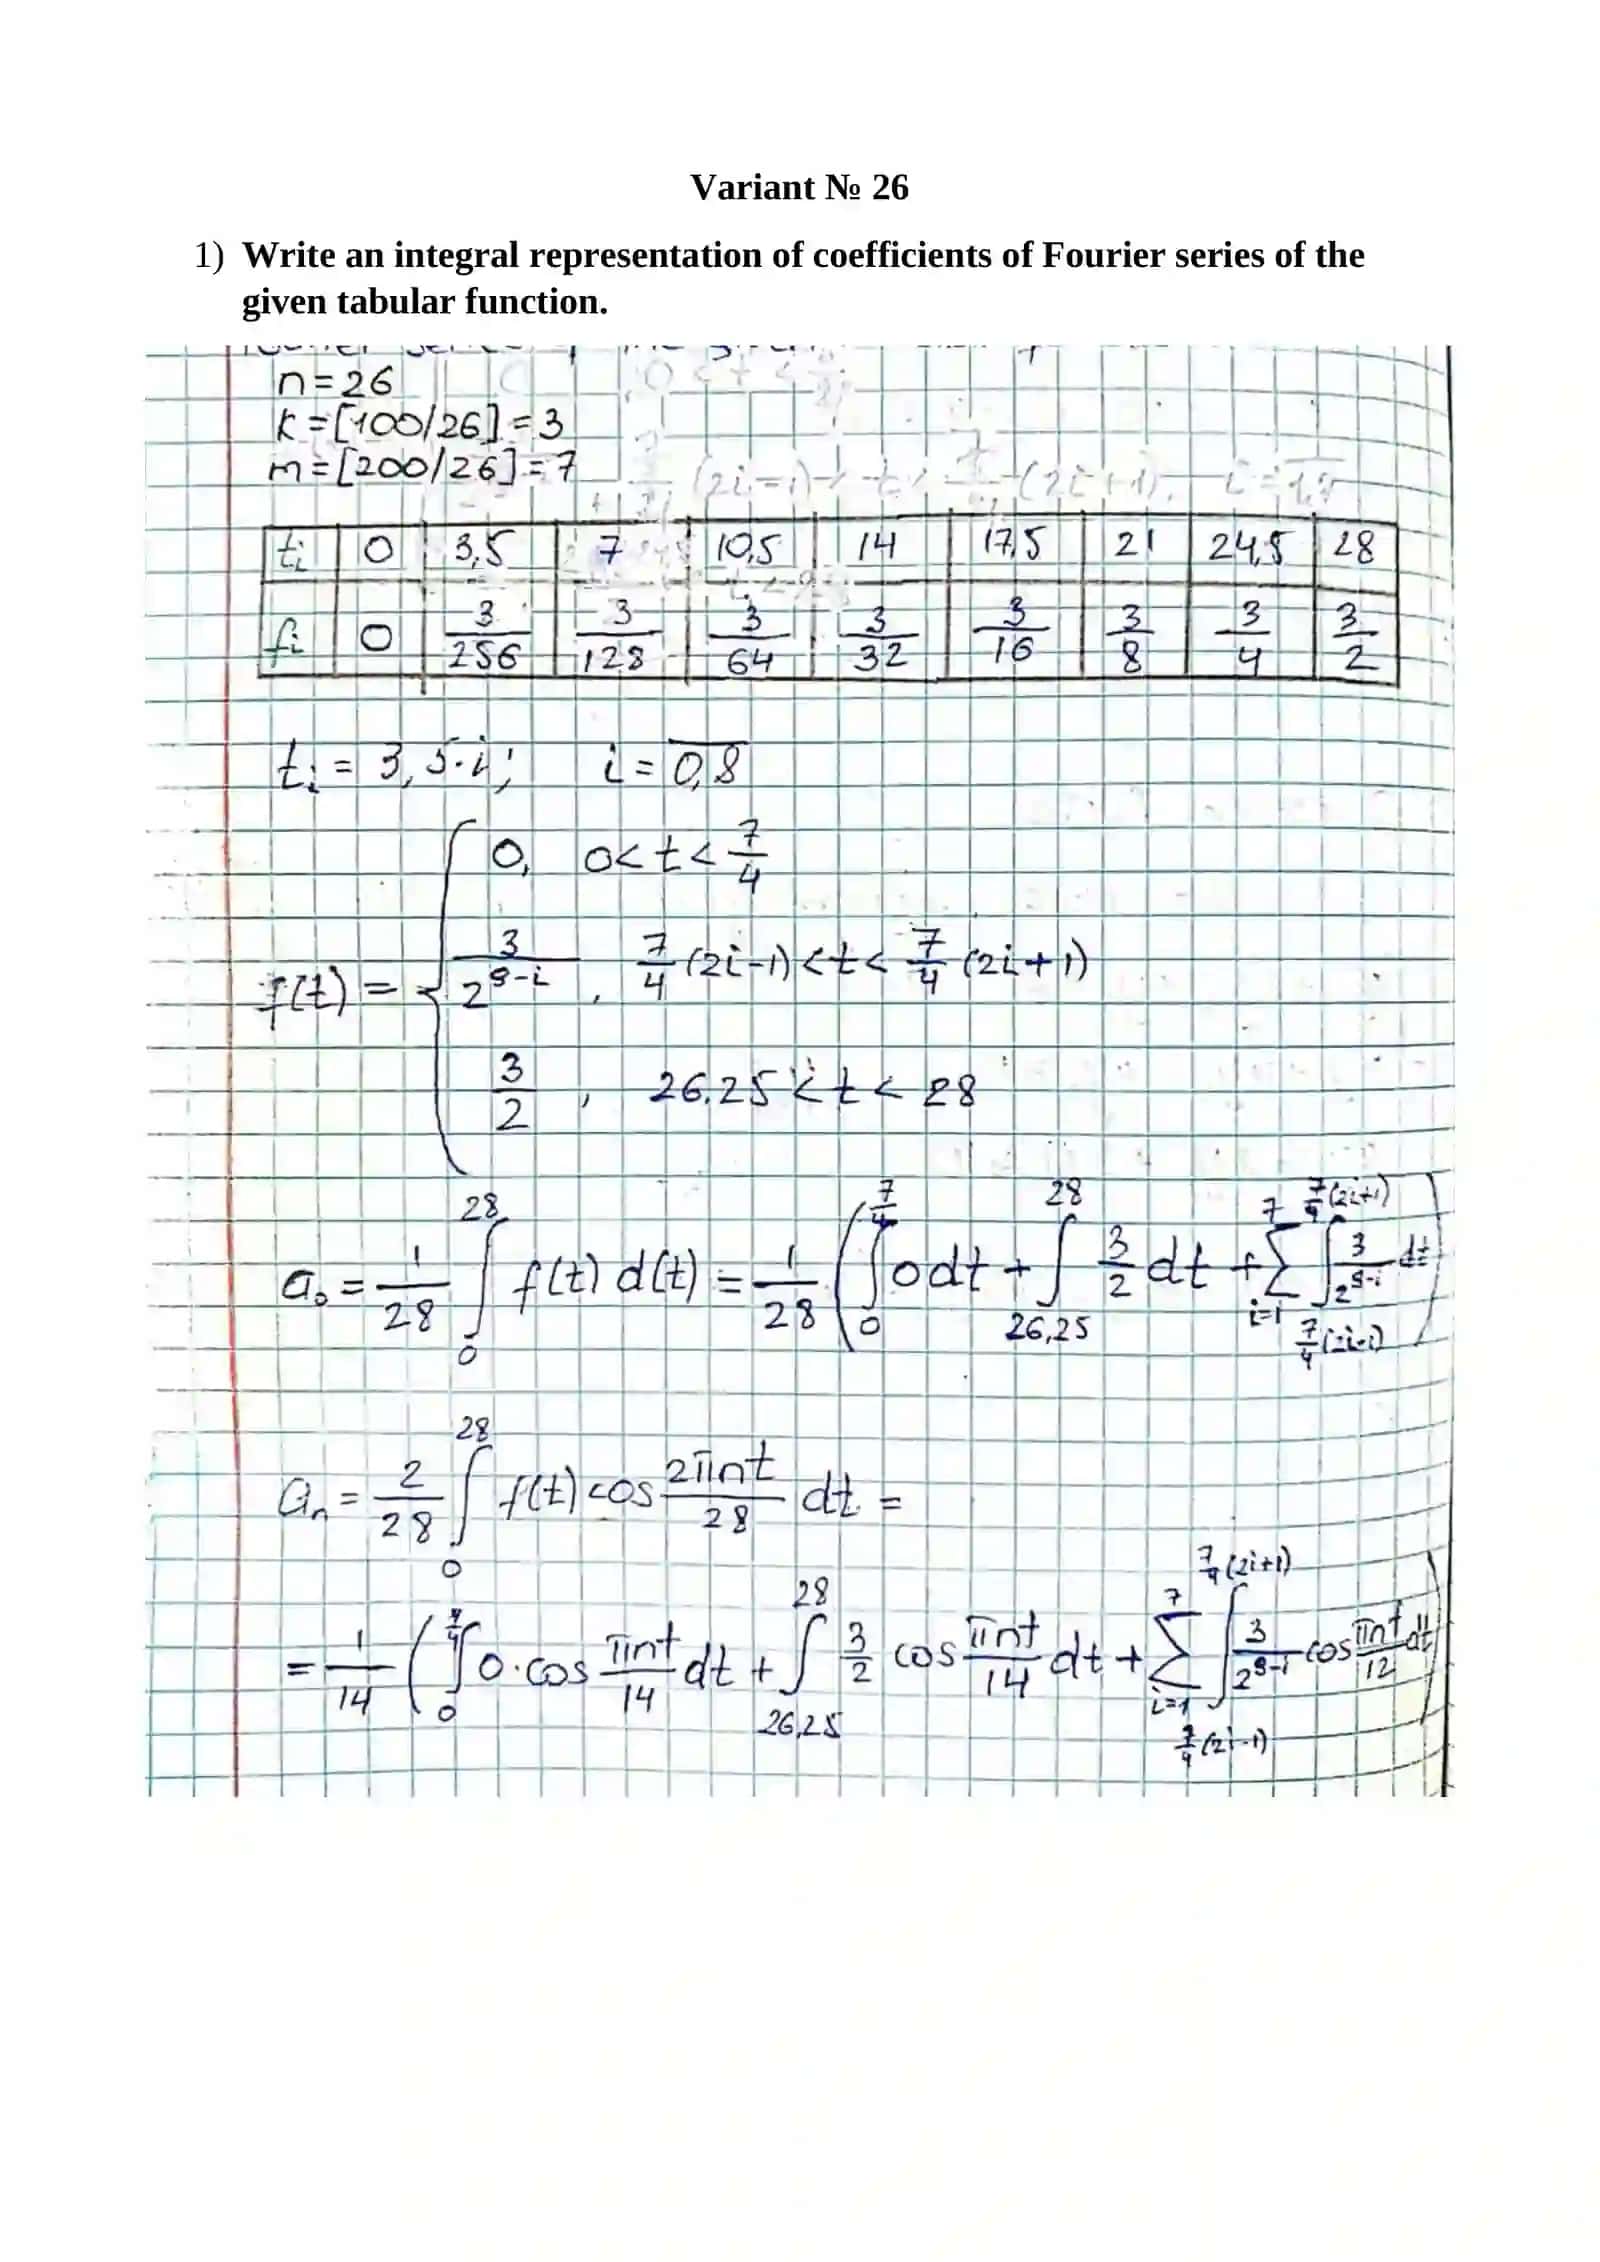 Variant № 26
1) Write an integral representation of coefficients of Fourier series of the
given tabular function.
n=26
k=[100/26]=3
m=[200/26]=7
tᵢ | 0 | 3,5 | 7 | 10,5 | 14 | 17,5 | 21 | 24,5 | 28
fᵢ | 0 | 3/256 | 3/128 | 3/64 | 3/32 | 3/16 | 3/8 | 3/4 | 3/2
tᵢ = 3,5·i; i = 0,8
0, 0<t<7/4
f(t) = { 3/2^(9-i), 7/4(2i-1)<t<7/4(2i+1)
3/2, 26.25<t<28
a₀ = 1/28 ∫₀²⁸ f(t) d(t) = 1/28 (∫₀^(7/4) 0dt + ∫_(26,25)^28 3/2 dt + Σ_(i=1)^7 ∫_(7/4(2i-1))^(7/4(2i+1)) 3/2^(9-i) dt)
aₙ = 2/28 ∫₀²⁸ f(t) cos 2πnt/28 dt =
= 1/14 (∫₀^(7/4) 0·cos πnt/14 dt + ∫_(26,25)^28 3/2 cos πnt/14 dt + Σ_(i=1)^7 ∫_(7/4(2i-1))^(7/4(2i+1)) 3/2^(9-i) cos πnt/12 dt)